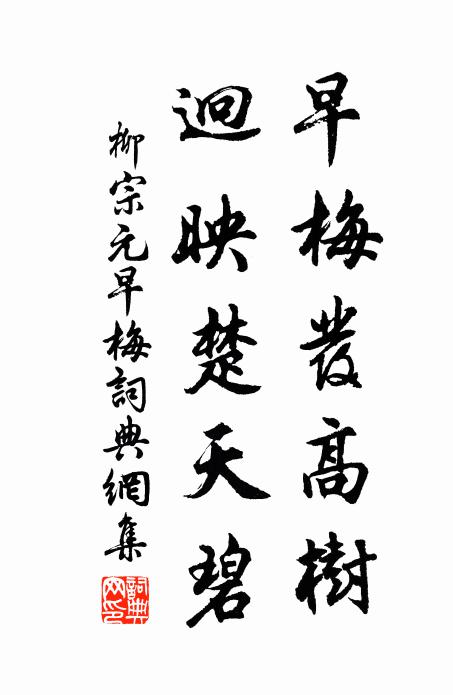 早梅發高樹
迥映楚天碧
柳宗元早梅詞典網集
詞典網印